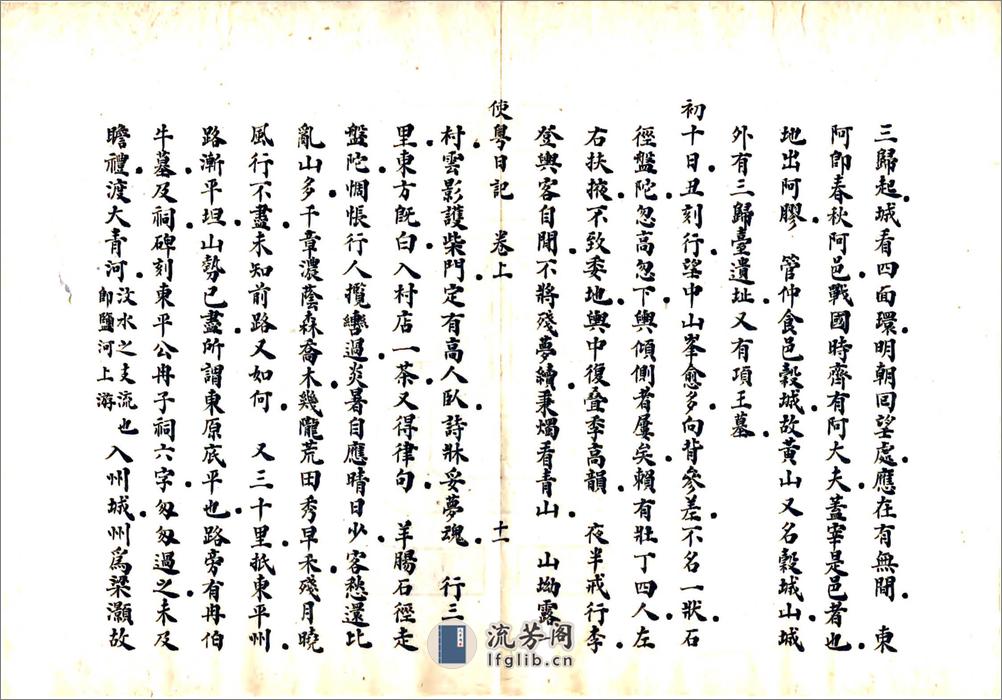 三歸起城看四面環明朝回望處應在有無間　東
阿即春秋阿邑戰國時齊有阿大夫蓋宰是邑者也
地出阿膠　管仲食邑穀城故黃山又名穀城山城
外有三歸臺遺址又有項王墓
初十日丑刻行望中山峯愈多向背參差不名一狀石
徑盤陀忽高忽下輿傾側者屢矣賴有壯丁四人左
右扶掖不致委地輿中復疊季高韻　夜半戒行李
登輿客自閒不將殘夢續秉燭看青山　山坳露一
使粵日記　卷上　十一
村雲影護柴門定有高人臥詩牀妥夢魂　行三
里東方既白入村店一茶又得律句　羊腸石徑走
盤陀惆悵行人攬轡過炎暑自應晴日少客愁還比
亂山多千章濃蔭森喬木幾隴荒田秀早禾殘月曉
風行不盡未知前路又如何　又三十里抵東平州
路漸平坦山勢已盡所謂東原底平也路旁有冉伯
牛墓及祠碑刻東平公冉子祠六字匆匆過之未及
瞻禮渡大青河汶水之支流也即鹽河上游入州城州為梁灝故
流芳阁
lfglib.cn